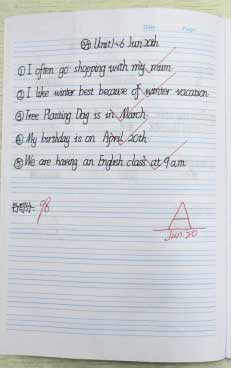 Unit1~6 Jun 20th
① I often go shopping with my mum.
② I like winter best because of winter vacation.
③ Tree Planting Day is in March.
④ My birthday is on April 20th.
⑤ We are having an English class at 9 a.m.
98
A
Jun.20